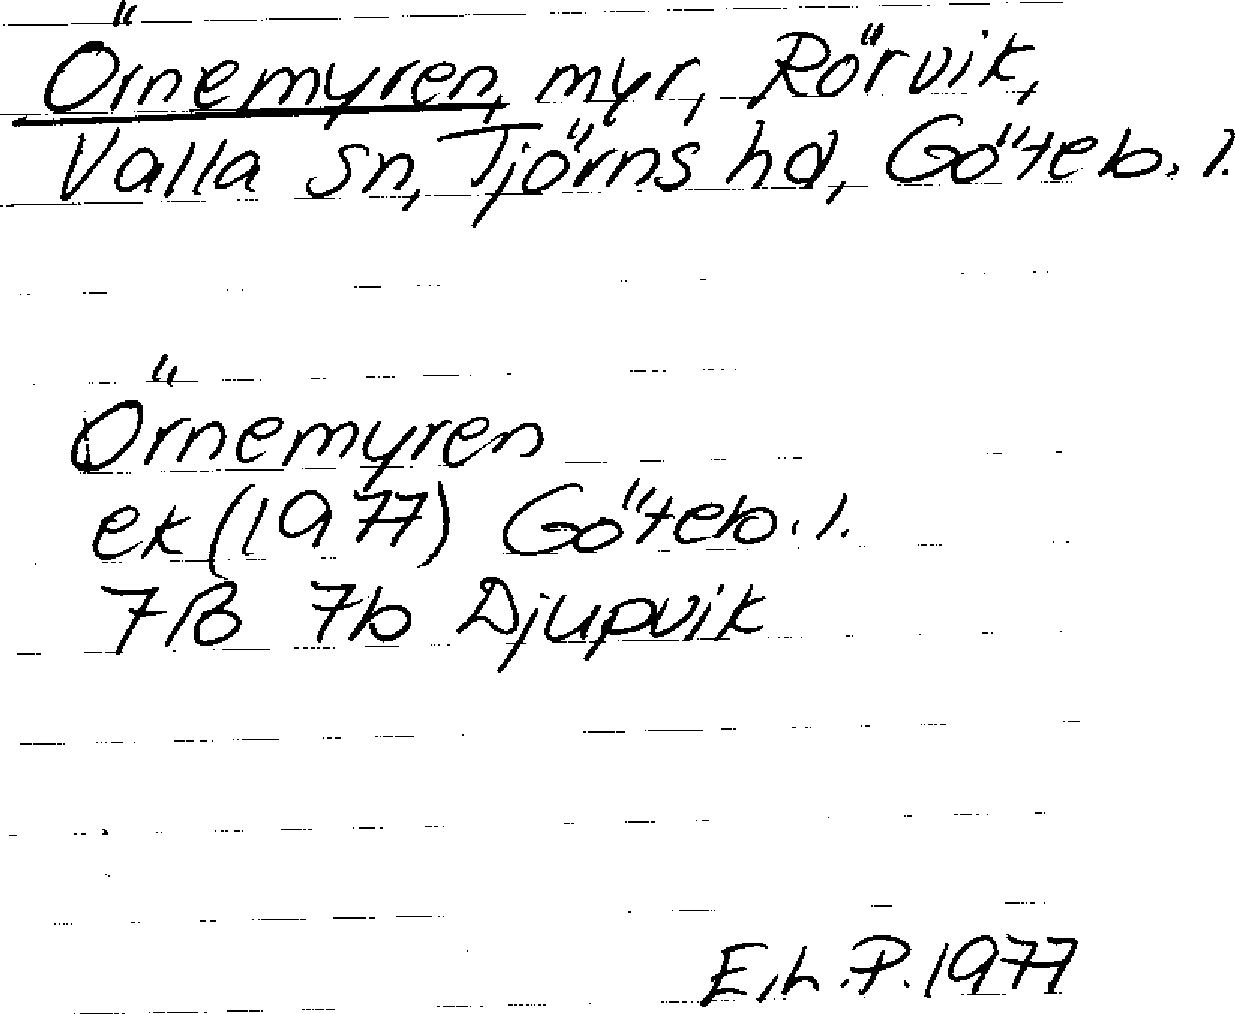 Örnemyren, myr, Rörvik,
Valla sn, Tjörns hd, Göteb. l.
Örnemyren
ek (1977) Göteb. l.
7B 7b Djupvik
E.L.P. 1977